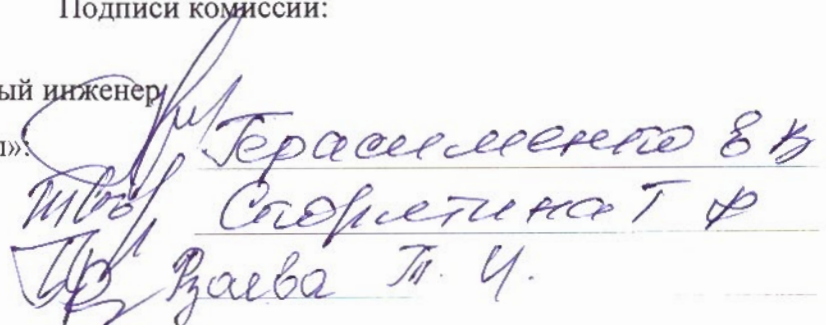 Подписи комиссии:
ый инженер
»: Герасименко Е В
Т Ф
Рзаева Т. И.